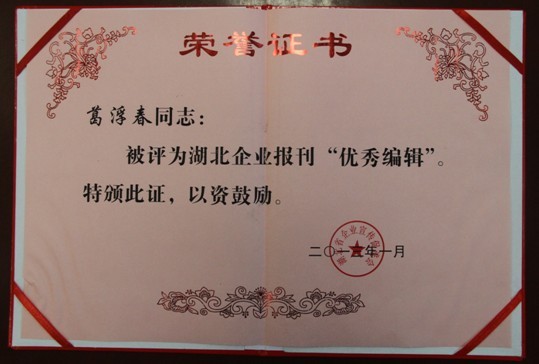 荣誉证书
葛浮春同志：
被评为湖北企业报刊“优秀编辑”。
特颁此证，以资鼓励。
二〇一年一月